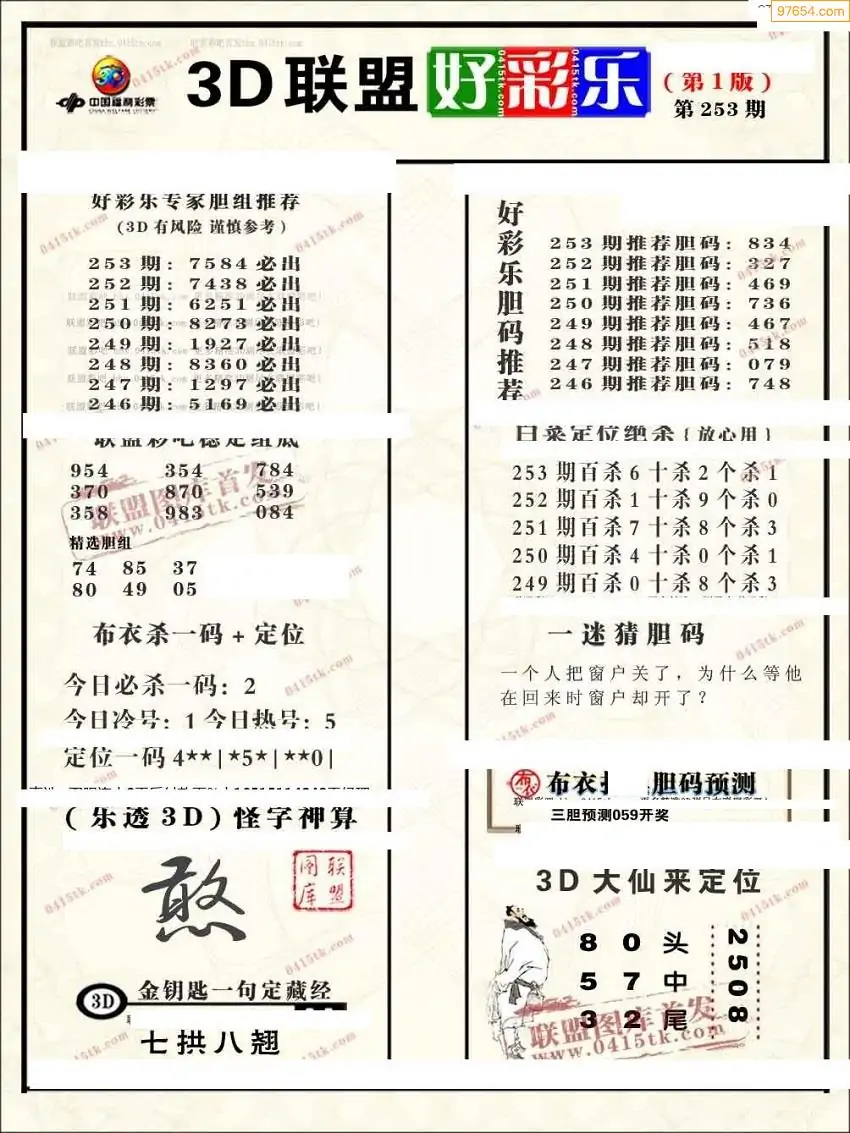 97654.com
3D联盟好彩乐
(第1版)
第253期
中国福利彩票
CHINA WELFARE LOTTERY
好彩乐专家胆组推荐
(3D有风险 谨慎参考)
253期: 7584必出
252期: 7438必出
251期: 6251必出
250期: 8273必出
249期: 1927必出
248期: 8360必出
247期: 1297必出
246期: 5169必出
联盟彩吧稳定组底
954 354 784
370 870 539
358 983 084
联盟图库首发
www.0415tk.com
精选胆组
74 85 37
80 49 05
布衣杀一码+定位
今日必杀一码: 2
今日冷号: 1 今日热号: 5
定位一码 4**|*5*|**0|
(乐透3D) 怪字神算
憨
联盟图库
3D 金钥匙一句定藏经
七拱八翘
好彩乐胆码推荐
253期推荐胆码: 834
252期推荐胆码: 327
251期推荐胆码: 469
250期推荐胆码: 736
249期推荐胆码: 467
248期推荐胆码: 518
247期推荐胆码: 079
246期推荐胆码: 748
白菜定位绝杀{放心用}
253期百杀6十杀2个杀1
252期百杀1十杀9个杀0
251期百杀7十杀8个杀3
250期百杀4十杀0个杀1
249期百杀0十杀8个杀3
一迷猜胆码
一个人把窗户关了，为什么等他
在回来时窗户却开了？
布衣 胆码预测
三胆预测059开奖
3D大仙来定位
8 0 头
5 7 中
3 2 尾
2508
联盟图库首发
www.0415tk.com